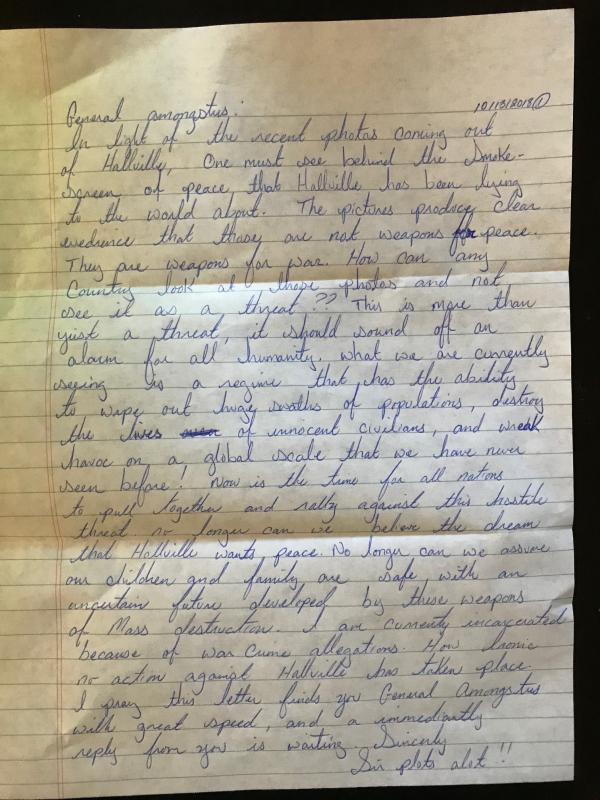 10/13/2018 ①
General Amongstus:
In light of the recent photos coming out
of Hallville, One must see behind the smoke-
screen of peace, that Hallville has been lying
to the world about. The pictures produce clear
evedrence that thase are not weapons for peace.
They are weapons for war. How can any
Country look at those photos and not
see it as a threat?? This is more than
just a threat, it should sound off an
alarm for all humanity. what we are currently
seeing is a regime that has the ability
to wipe out huge swaths of populations, destroy
the lives of innocent civilians, and wreak
havoc on a global scale that we have never
seen before! Now is the time for all nations
to pull together and rally against this hostile
threat. no longer can we believe the dream
that Hallville wants peace. No longer can we assure
our children and family are safe, with an
uncertain future developed by these weapons
of Mass destruction. I am currently incarcerated
because of war crime allegations. How Ironic
no action against Hallville has taken place.
I pray this letter finds you General Amongstus
with great speed, and a immediantly
reply from you is waiting. Sincerly
Sir plots alot!!